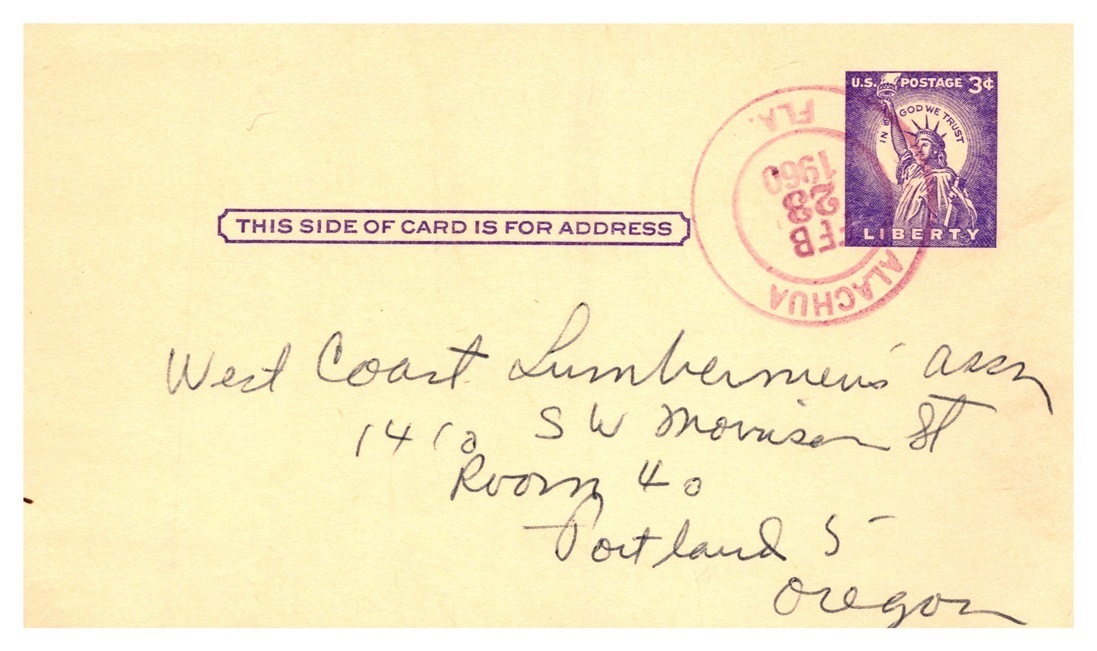 U.S. POSTAGE 3¢
IN GOD WE TRUST
LIBERTY
ALACHUA
FLA.
FEB
28
1960
THIS SIDE OF CARD IS FOR ADDRESS
West Coast Lumbermen's assn
1410 SW Morrison St
Room 40
Portland 5
Oregon